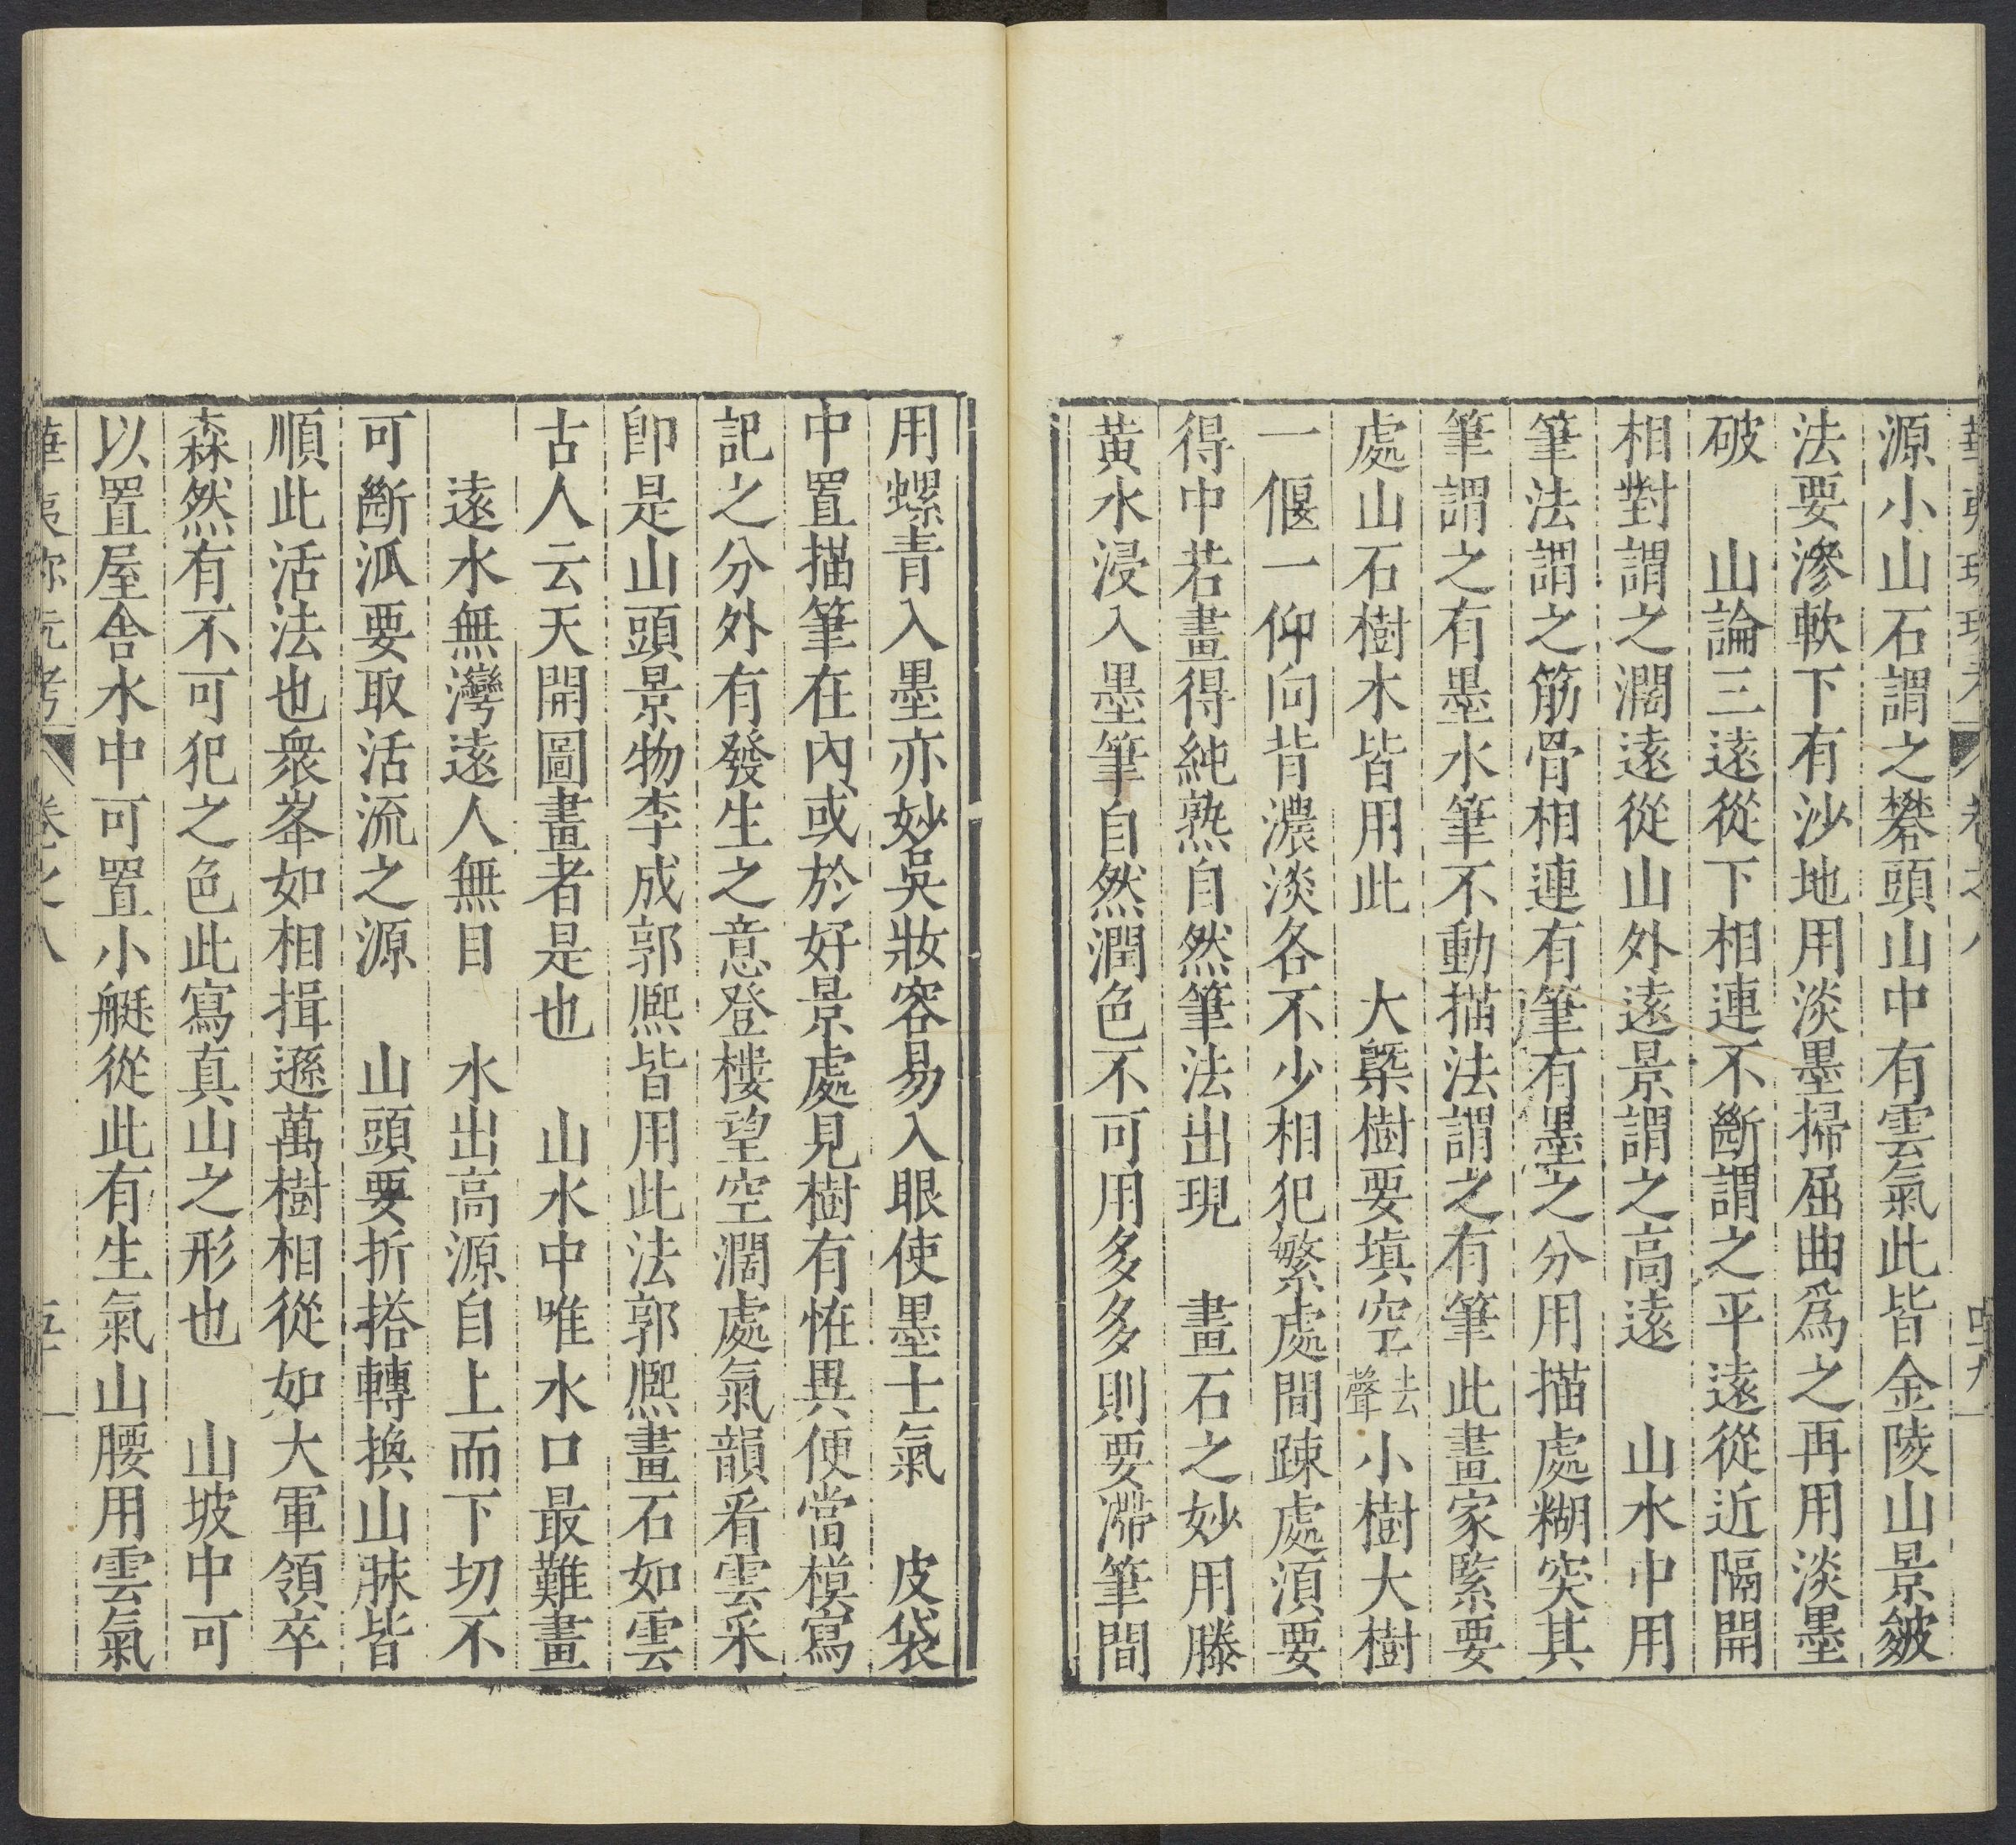 源小山石謂之礬頭山中有雲氣此皆金陵山景皴
法要滲軟下有沙地用淡墨掃屈曲爲之再用淡墨
破　山論三遠從下相連不斷謂之平遠從近隔開
相對謂之濶遠從山外遠景謂之高遠　山水中用
筆法謂之筋骨相連有筆有墨之分用描處糊突其
筆謂之有墨水筆不動描法謂之有筆此畫家緊要
處山石樹木皆用此　大槩樹要填空去聲小樹大樹
一偃一仰向背濃淡各不少相犯繁處間踈處須要
得中若畫得純熟自然筆法出現　畫石之妙用滕
黄水浸入墨筆自然潤色不可用多多則要滯筆間
用螺青入墨亦妙吳妝容易入眼使墨士氣　皮袋
中置描筆在內或於好景處見樹有恠異便當模寫
記之分外有發生之意登樓望空濶處氣韻看雲采
卽是山頭景物李成郭熈皆用此法郭熈畫石如雲
古人云天開圖畫者是也　山水中唯水口最難畫
遠水無灣遠人無目　水出高源自上而下切不
可斷泒要取活流之源　山頭要折搭轉換山脉皆
順此活法也衆峯如相揖遜萬樹相從如大軍領卒
森然有不可犯之色此寫真山之形也　山坡中可
以置屋舍水中可置小艇從此有生氣山腰用雲氣